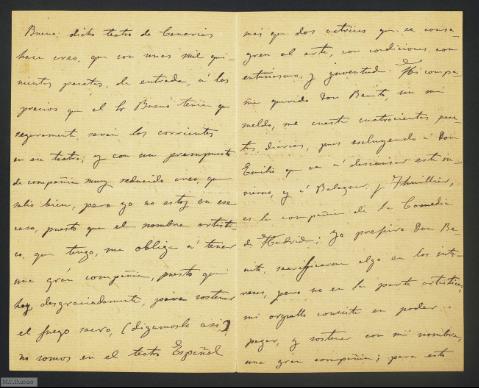 Bueno, dicho teatro de Canarias
hace creo, que con unas mil qui-
nientas pesetas, de entrada, á los
precios que el Sr. Bueno tenía que
seguramente, serán los corrientes
en su teatro, y con un presupuesto
de compañia muy reducido creo, que
salió bien, pero yo no estoy en ese
caso, puesto que el nombre artísti-
co, que tengo, me obliga á tener
una gran compañia, puesto que
hoy desgraciadamente, para sostener
el fuego sacro, (digamoslo asi)
no somos en el teatro Español
mas que dos actrices que se consa-
gran al arte, con condiciones con
entusiasmo, y juventud. Mi compa-
ñia querido Don Benito, sin mi
sueldo, me cuesta cuatrocientas pese-
tas, diarias, pues excluyendo á Don
Emilio que va á descansar este in-
vierno, y á Balaguer, y Thuillier,
es la compañia de la Comedia
de Madrid; yo prefiero Don Be-
nito, sacrificarme algo en los inte-
reses, pero no en la parte artística,
mi orgullo consiste en poder
pagar, y sostener con mi nombre,
una gran compañia; para esto